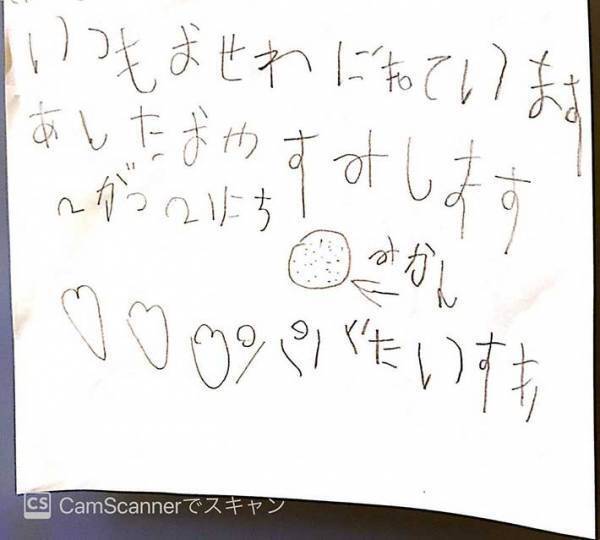 いつもおせわになっています
あしたおやすみします
2がつ2にち
みかん
パパがだいすき
CS CamScannerでスキャン